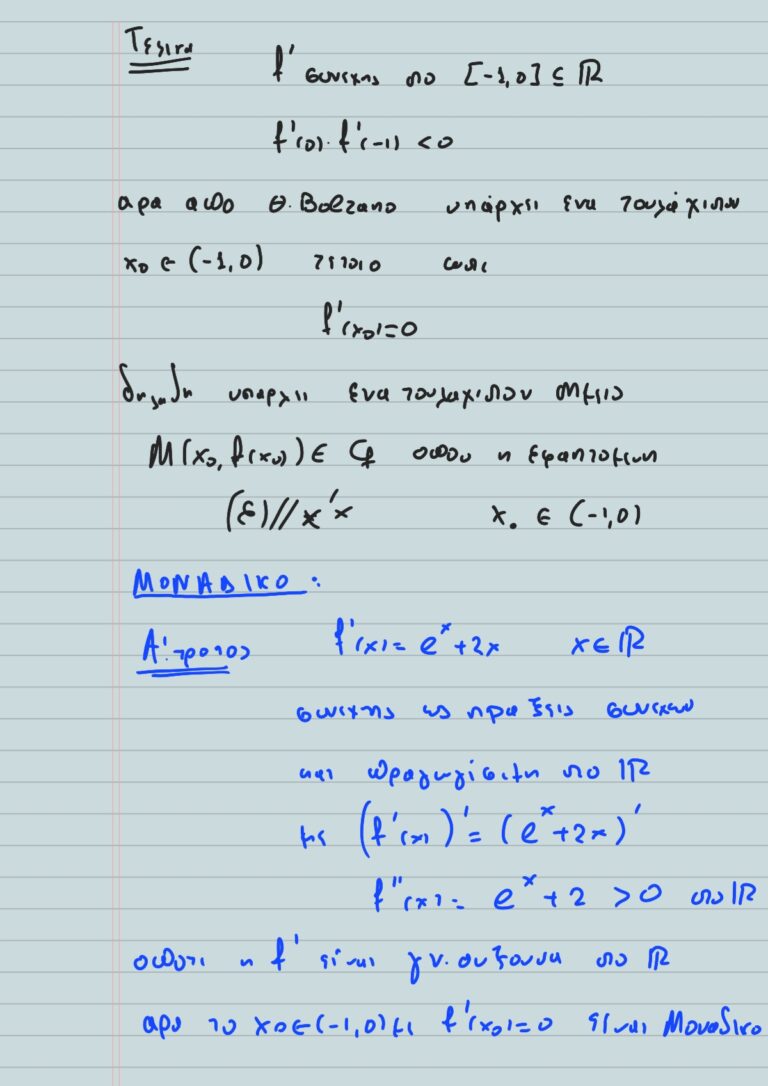 Τελικα
f' συνεχης στο [-1,0] ⊆ ℝ
f'(0)·f'(-1) < 0
αρα απο Θ. Bolzano υπάρχει ενα τουλάχιστον
x₀ ∈ (-1,0) τετοιο ωστε
f'(x₀)=0
δηλαδη υπαρχει ενα τουλαχιστον σημειο
M(x₀, f(x₀)) ∈ Cf οπου η εφαπτομενη
(ε)//x'x x₀ ∈ (-1,0)
ΜΟΝΑΔΙΚΟ :
Α' τροπος f'(x) = eˣ+2x x∈ℝ
συνεχης ως πραξεις συνεχων
και παραγωγίσιμη στο ℝ
με (f'(x))' = (eˣ+2x)'
f''(x) = eˣ+2 > 0 στο ℝ
οποτε η f' είναι γν. αυξουσα στο ℝ
αρα το x₀∈(-1,0) με f'(x₀)=0 είναι Μοναδικο